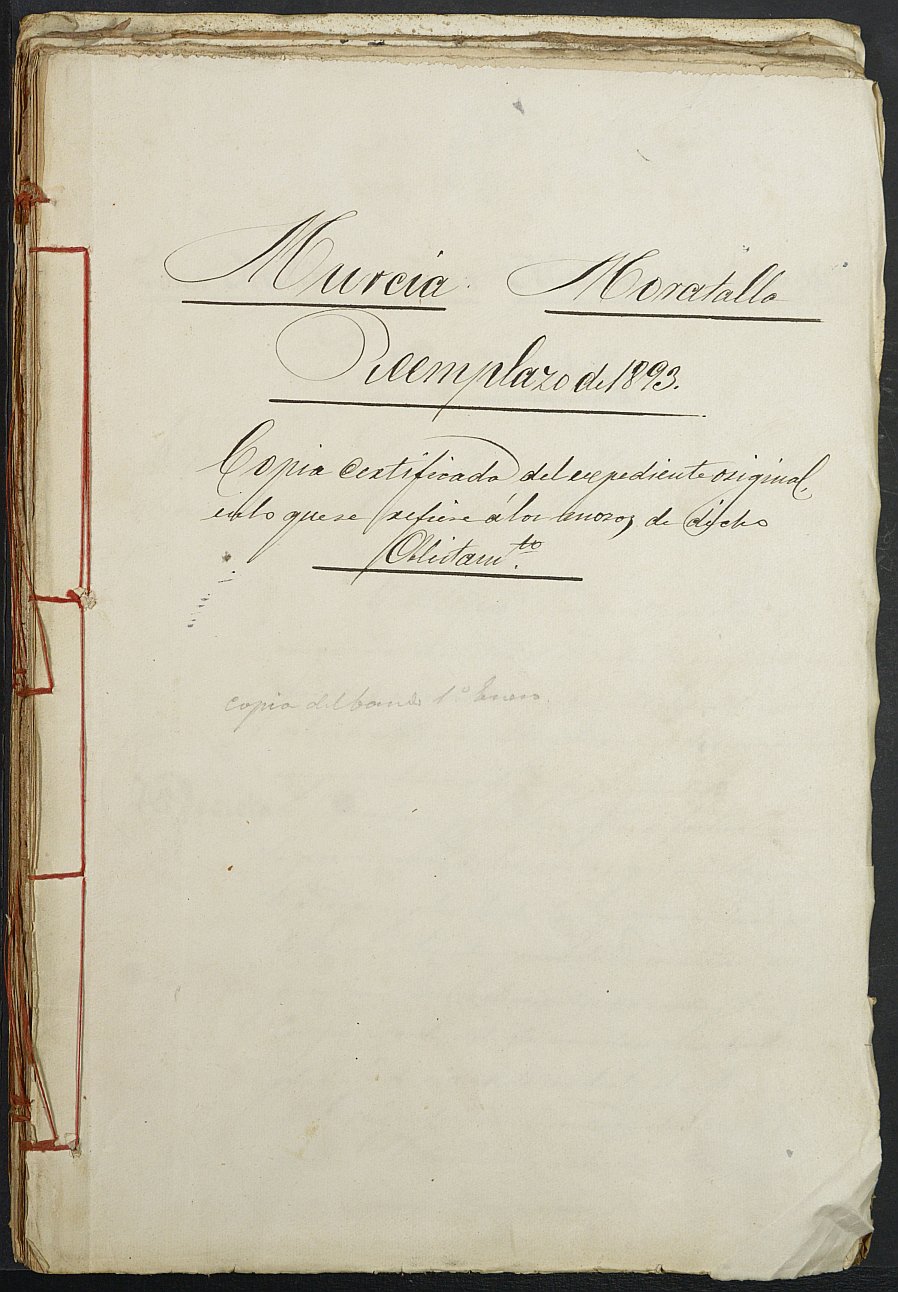 Murcia. Moratalla
Reemplazo de 1893.
Copia certificada del expediente original,
en lo que se refiere á los mozos de dicho
Alistam.to
copia del bando 1º Enero